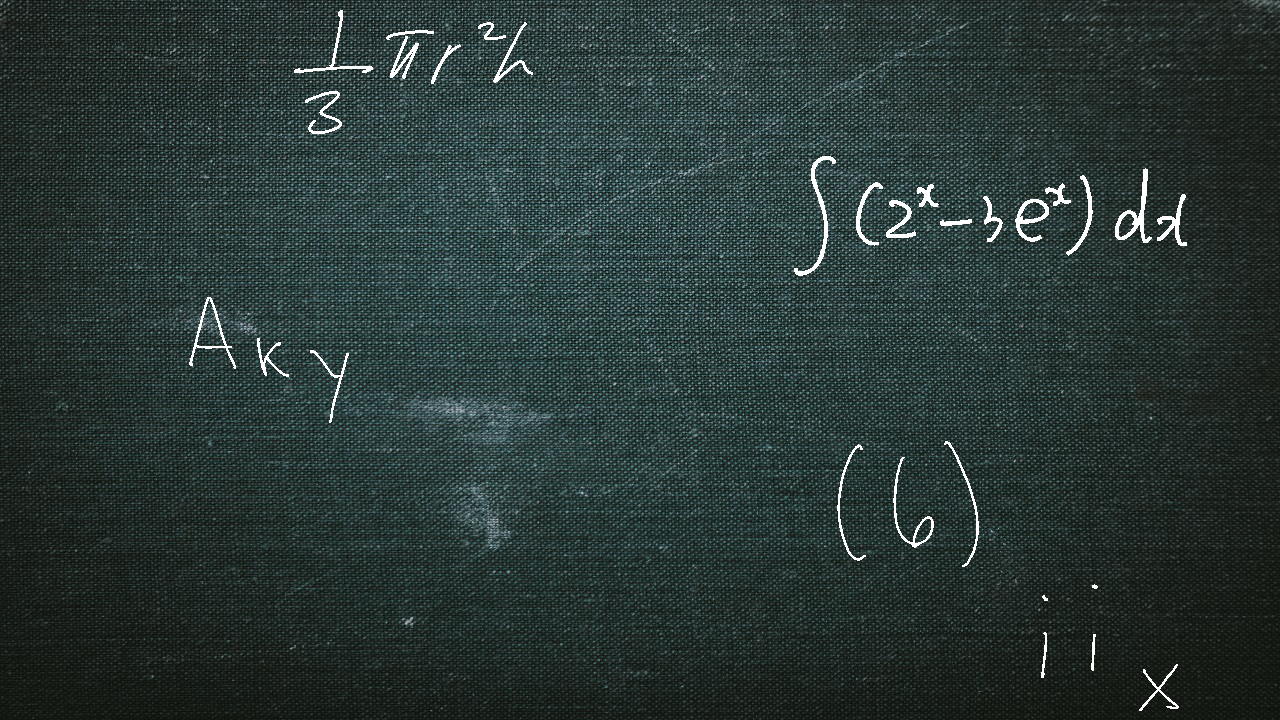 1/3 πr²h
∫(2ˣ-3eˣ)dx
A K y
(6)
i i x